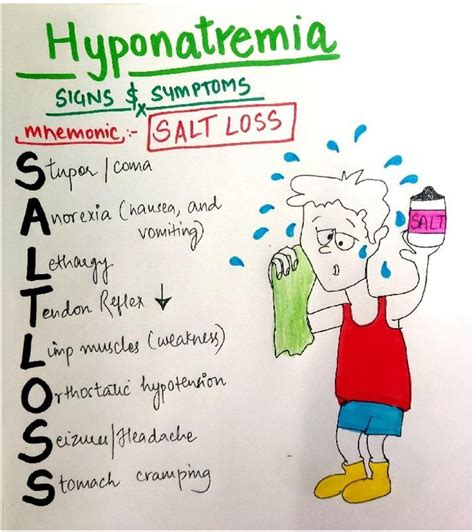 Hyponatremia
SIGNS & SYMPTOMS
mnemonic :- SALT LOSS
Stupor / coma
Anorexia (nausea, and
vomiting)
Lethargy
Tendon Reflex ↓
Limp muscles (weakness)
Orthostatic hypotension
Seizures/Headache
Stomach cramping
SALT